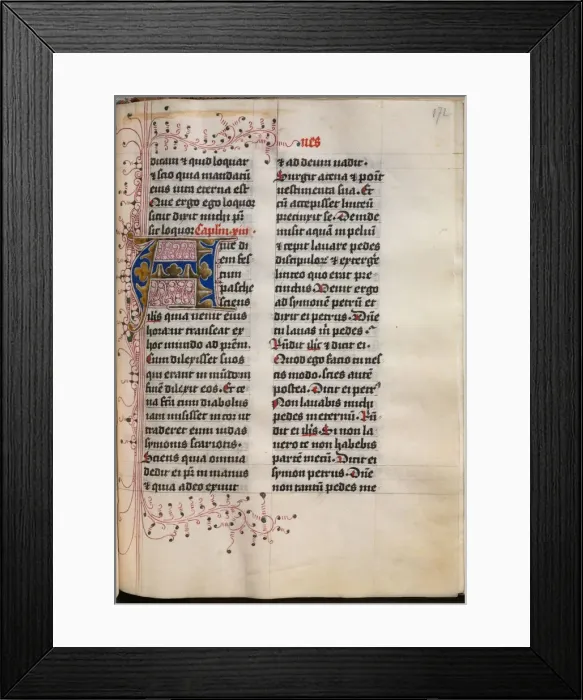 172
nes
dicam & quid loquar
& scio quia mandatū
eius uita eterna est
Que ergo ego loquor
sicut dixit michi pr̄
sic loquor Caplm. xiii.
Ante di
em fes
tum
pasche
sciens
ih̄s quia uenit eius
hora ut transeat ex
hoc mundo ad prēm.
Cum dilexisset suos
qui erant in mūdo in
finē dilexit eos. Et ce
na fca cum diabolus
iam misisset in cor ut
traderet eum iudas
symonis scariotis.
Sciens quia omnia
dedit ei pr̄ in manus
& quia a deo exiuit
& ad deum uadit.
Surgit a cena & ponit
uestimenta sua. Et
cū accepisset linteū
precinxit se. Deinde
misit aquā in peluī
& cepit lauare pedes
discipuloꝝ & extergē
linteo quo erat pre
cinctus. Uenit ergo
ad symonē petrū et
dixit ei petrus. Dn̄e
tu lauas m̄ pedes
Rn̄dit ih̄c & dicit ei.
Quod ego facio tu nes
cis modo. scies autē
postea. Dicit ei petr᷒
Non lauabis michi
pedes in eternū. Rn̄
dit ei ih̄s. Si non la
uero te non habebis
partē mecū. Dicit ei
symon petrus. Dn̄e
non tantū pedes me